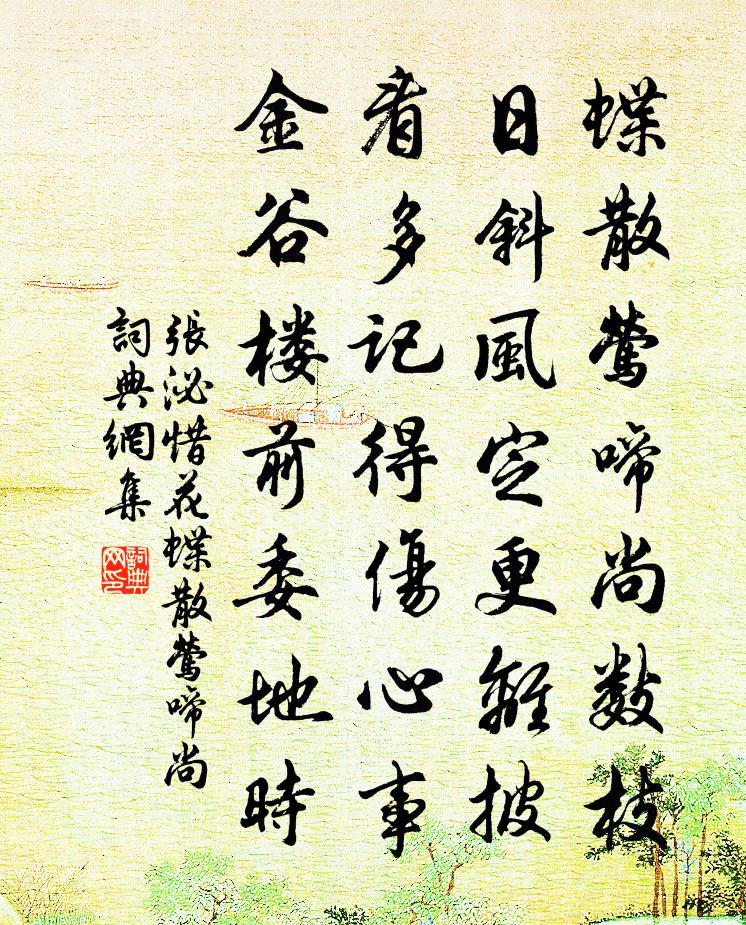 蝶散鶯啼尚數枝
日斜風定更離披
看多記得傷心事
金谷楼前委地時
張泌惜花蝶散鶯啼尚
詞典網集
詞典
网印